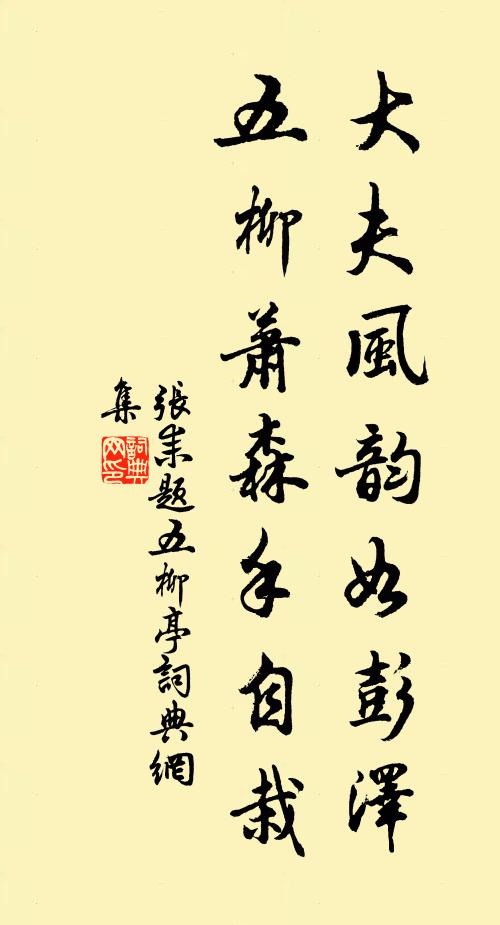 大夫風韵如彭澤
五柳蕭森手自栽
張耒題五柳亭詞典網
集
詞典
网印